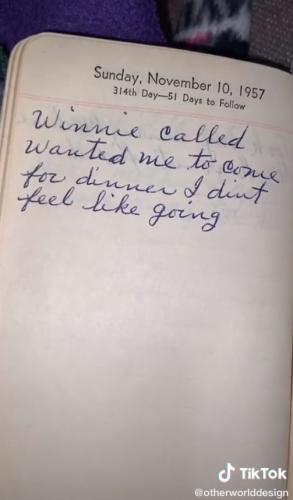 Sunday, November 10, 1957
314th Day—51 Days to Follow
Winnie called
wanted me to come
for dinner I dint
feel like going
TikTok
@otherworlddesign